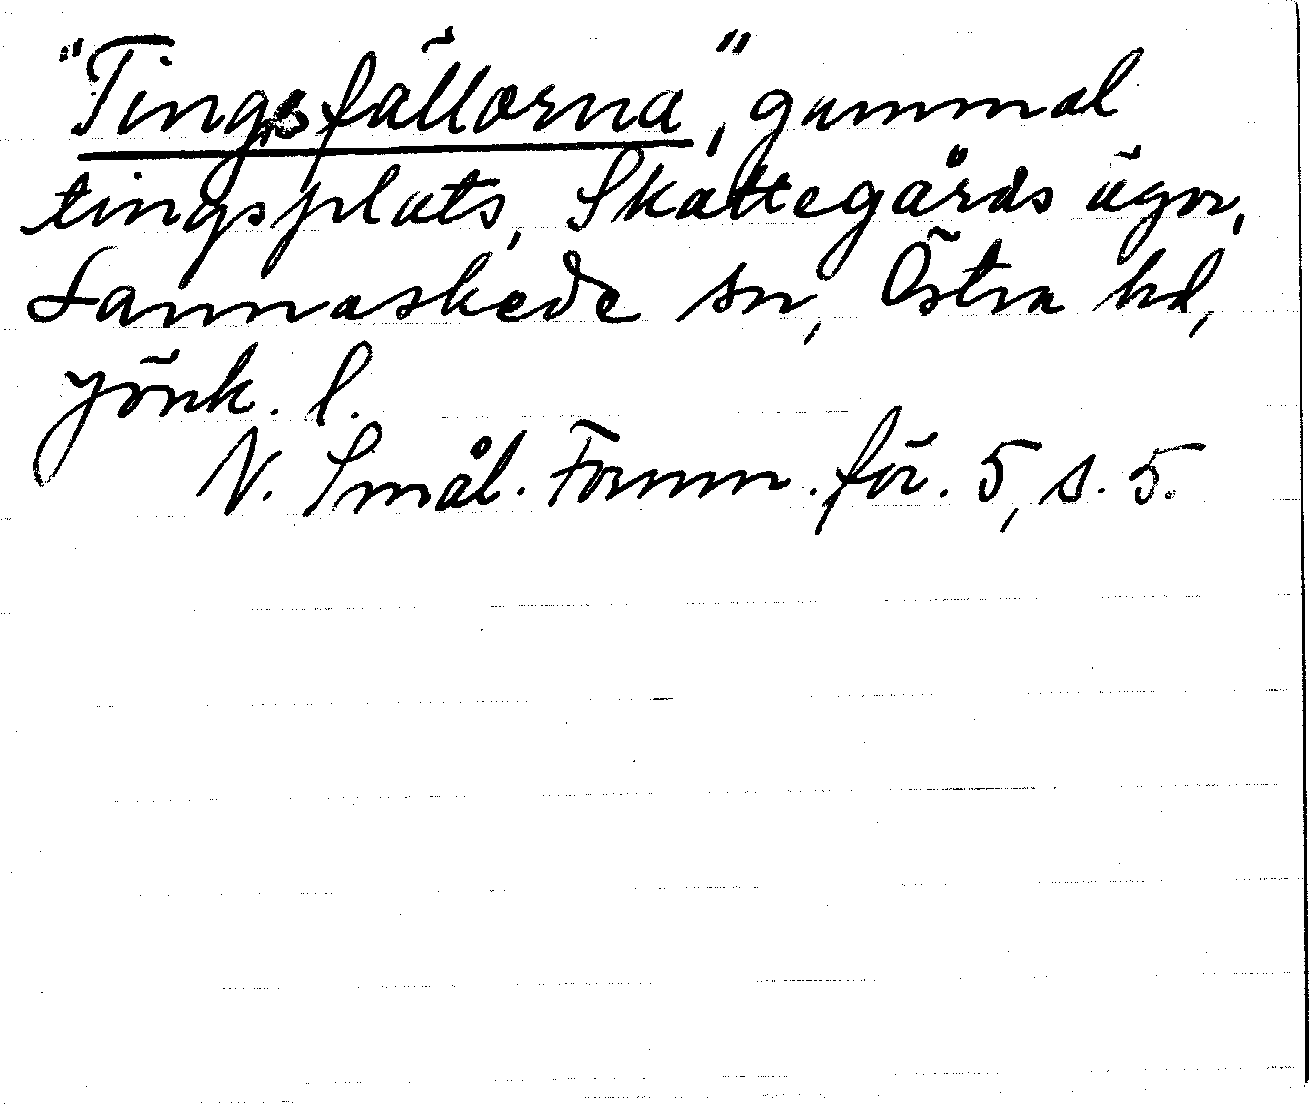 "Tingsfällorna", gammal
tingsplats, Skattegårds ägor,
Lannaskede sn, Östra hd,
Jönk. l.
N. Smål. Fornm. för. 5, s. 5.